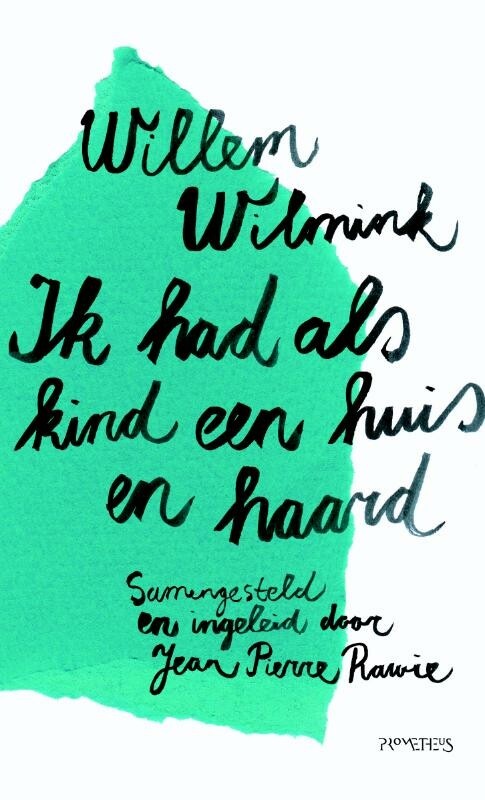 Willem
Wilmink
Ik had als
kind een huis
en haard
Samengesteld
en ingeleid door
Jean Pierre Rawie
PROMETHEUS